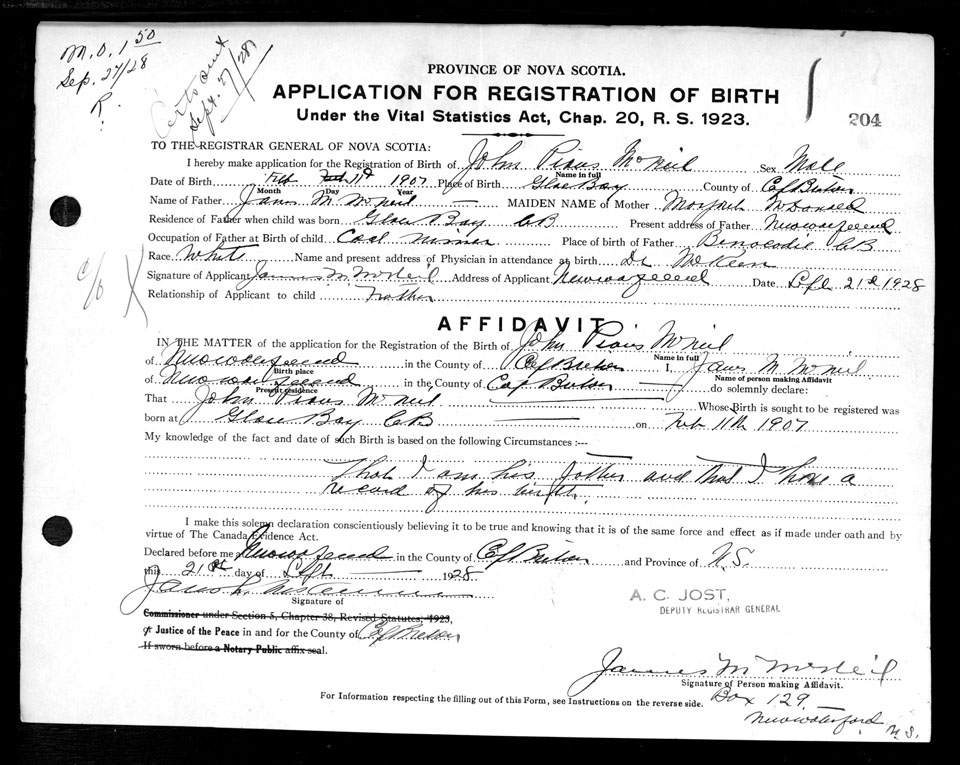 M.O. 1 50
Sep. 27/28
R.
Certs sent
Sept. 27/28
204
PROVINCE OF NOVA SCOTIA.
APPLICATION FOR REGISTRATION OF BIRTH
Under the Vital Statistics Act, Chap. 20, R. S. 1923.
TO THE REGISTRAR GENERAL OF NOVA SCOTIA:
I hereby make application for the Registration of Birth of John Pious McNeil Sex Male
Name in full
Date of Birth Feb 11th 1907 Place of Birth Glace Bay County of Cape Breton
Month Day Year
Name of Father James M McNeil MAIDEN NAME of Mother McDonald
Residence of Father when child was born Glace Bay CB Present address of Father Newwaterford
Occupation of Father at Birth of child Coal Place of birth of Father CB
Race White Name and present address of Physician in attendance at birth Dr McKeen
Signature of Applicant James M McNeil Address of Applicant Newwaterford Date Sept 21st 1928
Relationship of Applicant to child Father
c/o X
AFFIDAVIT
IN THE MATTER of the application for the Registration of the Birth of John Pious McNeil
Name in full
of Newwaterford in the County of Cape Breton I, James M McNeil
Birth place
Name of person making Affidavit
of Newwaterford in the County of Cape Breton do solemnly declare:
Present residence
That John Pious McNeil Whose Birth is sought to be registered was
born at Glace Bay CB on Feb 11th 1907
My knowledge of the fact and date of such Birth is based on the following Circumstances :--
That I am his Father and that I have a
record of his birth.
I make this solemn declaration conscientiously believing it to be true and knowing that it is of the same force and effect as if made under oath and by
virtue of The Canada Evidence Act.
Declared before me at Newwaterford in the County of Cape Breton and Province of N.S.
this 21st day of Sept 1928
A. C. JOST,
DEPUTY REGISTRAR GENERAL
Signature of
Commissioner under Section 5, Chapter 38, Revised Statutes, 1923,
Justice of the Peace in and for the County of Cape Breton
If sworn before a Notary Public affix seal.
James M McNeil
Signature of Person making Affidavit.
For Information respecting the filling out of this Form, see Instructions on the reverse side.
Box 129
Newwaterford N.S.